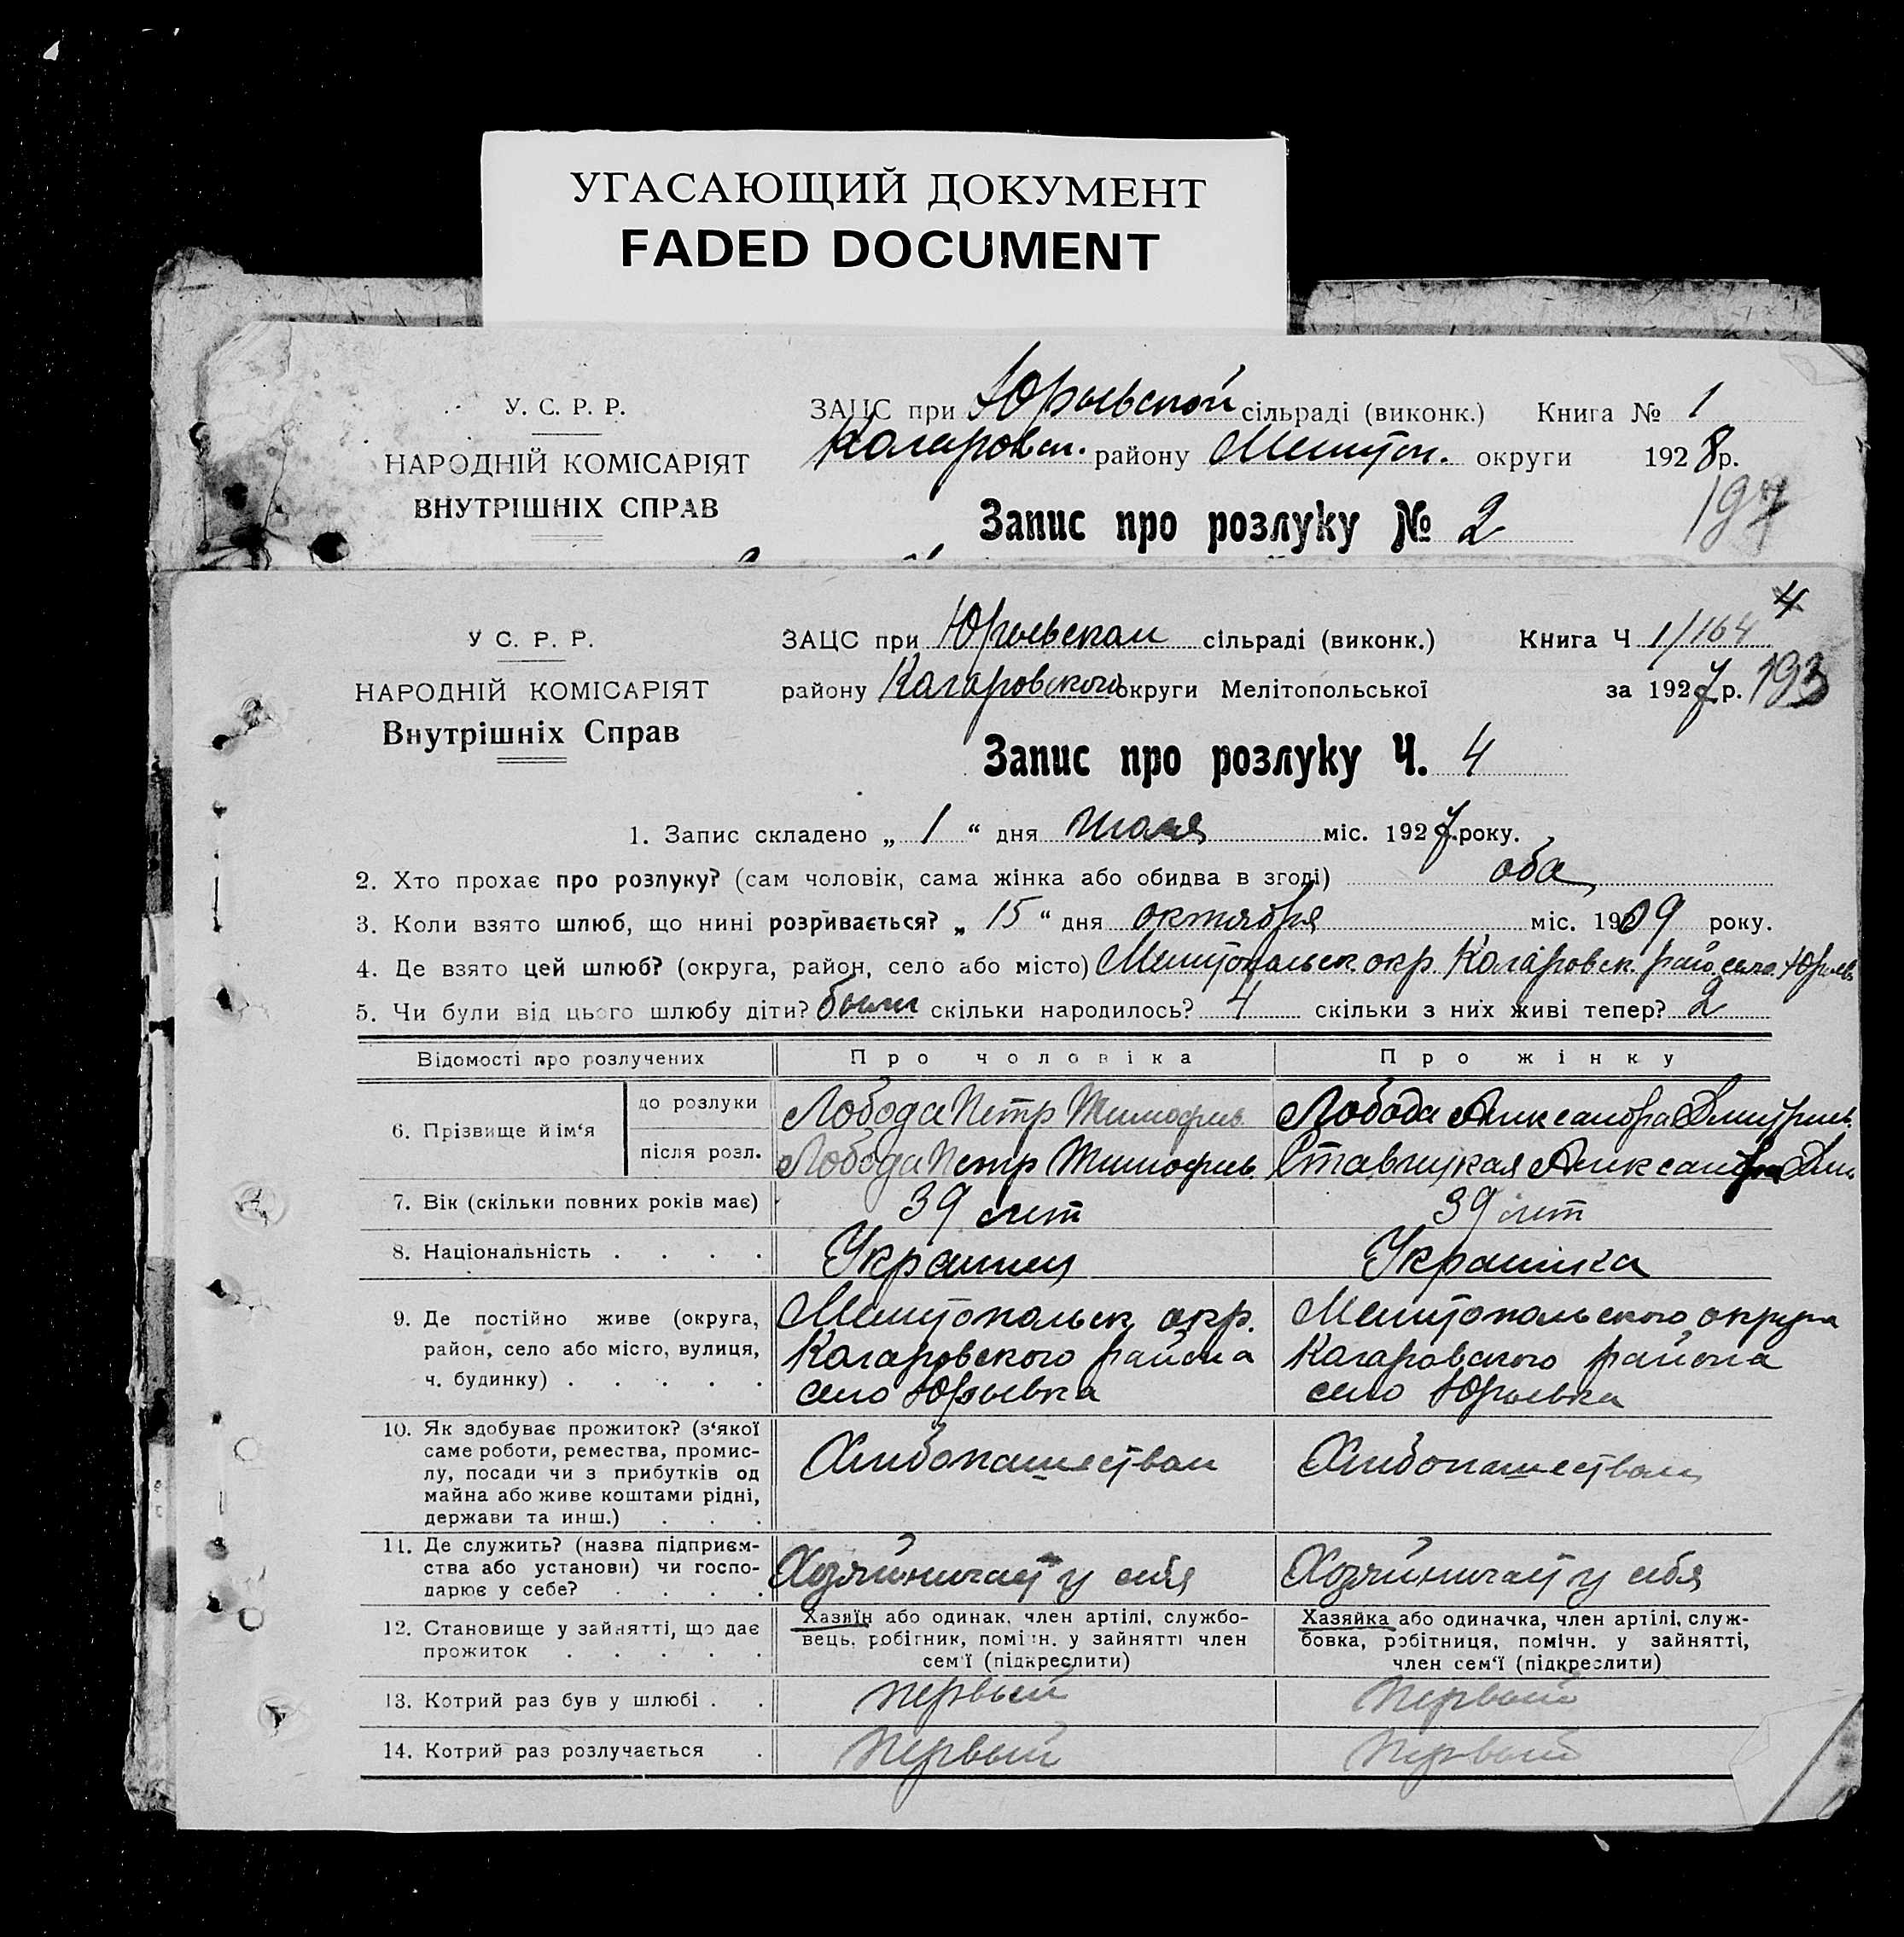 УГАСАЮЩИЙ ДОКУМЕНТ
FADED DOCUMENT
У. С. Р. Р.
НАРОДНІЙ КОМІСАРІЯТ
ВНУТРІШНІХ СПРАВ
ЗАЦС при Юрьевской сільраді (виконк.) Книга № 1
району Мелитоп. округи 1928 р.
Запис про розлуку № 2
197
У С. Р. Р.
НАРОДНІЙ КОМІСАРІЯТ
Внутрішніх Справ
4
ЗАЦС при Юрьевском сільраді (виконк.) Книга Ч 1/164
району Кагаровского округи Мелітопольської за 1927 р. 193
Запис про розлуку Ч. 4
1. Запис складено „ 1 “ дня июля міс. 1927 року.
2. Хто прохає про розлуку? (сам чоловік, сама жінка або обидва в згоді) оба
3. Коли взято шлюб, що нині розривається? „ 15 “ дня октября міс. 1909 року.
4. Де взято цей шлюб? (округа, район, село або місто) Мелитопольск. окр. Кагаровск. рай. село Юрьев
5. Чи були від цього шлюбу діти? были скільки народилось? 4 скільки з них живі тепер? 2
Відомості про розлучених Про чоловіка Про жінку
6. Прізвище й ім‘я
до розлуки Лобода Петр Тимофеев. Лобода Александра Дмитриев.
після розл. Лобода Петр Тимофеев. Ставицкая Александра Дми
7. Вік (скільки повних років має) 39 лет 39 лет
8. Національність . . . . Украинец Украинка
9. Де постійно живе (округа, район, село або місто, вулиця, ч. будинку) . . . . .
Мелитопольск. окр. Кагаровского района село Юрьевка
Мелитопольского округа Кагаровского района село Юрьевка
10. Як здобуває прожиток? (з‘якої
саме роботи, ремества, промис-
лу, посади чи з прибутків од
майна або живе коштами рідні,
держави та инш.) . . .
Хлебопашеством Хлебопашеством
11. Де служить? (назва підприєм-
ства або установи) чи госпо-
дарює у себе? . . . .
Хозяйничает у себя Хозяйничает у себя
12. Становище у зайнятті, що дає
прожиток . . . . .
Хазяїн або одинак, член артілі, службо-
вець, робітник, помічн. у зайнятті член
сем‘ї (підкреслити)
Хазяйка або одиначка, член артілі, служ-
бовка, робітниця, помічн. у зайнятті,
член сем‘ї (підкреслити)
13. Котрий раз був у шлюбі . . первый первый
14. Котрий раз розлучається . первый первый